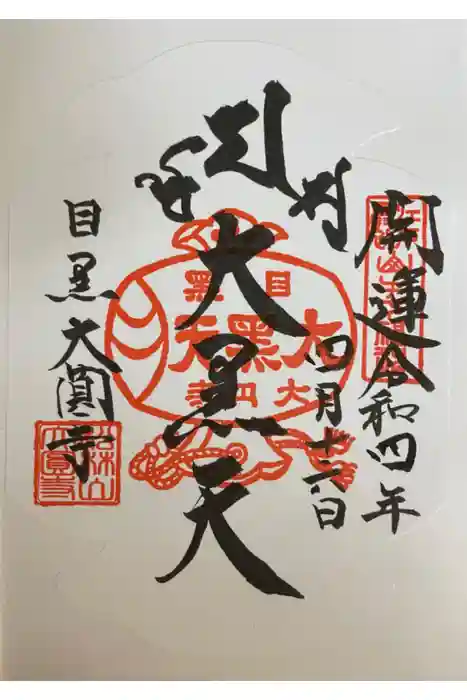 開運 令和四年
四月十六日
大黒天
目黒 大圓寺
目黒
大黒天
大円寺
松林山
大圓寺